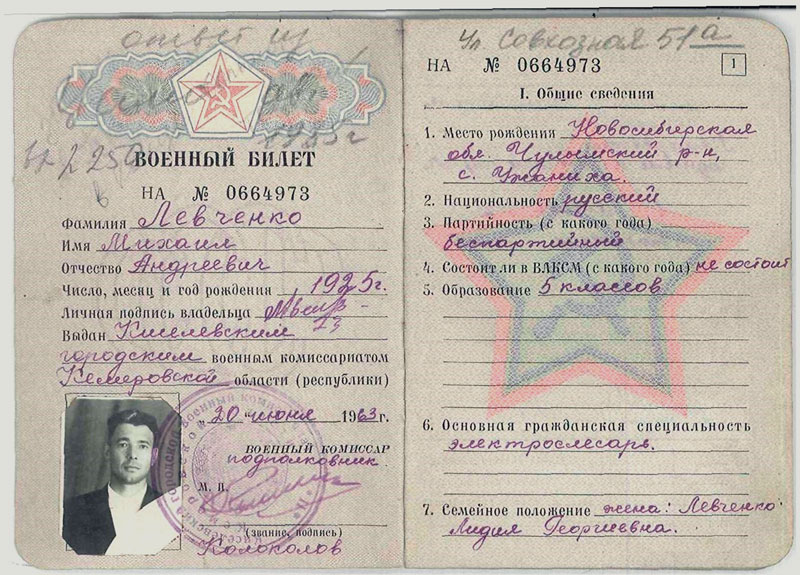 ответ из
1985г
ВОЕННЫЙ БИЛЕТ
НА № 0664973
Фамилия Левченко
Имя Михаил
Отчество Андреевич
Число, месяц и год рождения 1925г.
Личная подпись владельца
Выдан Киселевским
городским военным комиссариатом
Кемеровской области (республики)
"20" июня 1963г.
ВОЕННЫЙ КОМИССАР
подполковник
М. П.
(звание, подпись)
Колоколов
ул Совхозная 51а
НА № 0664973
1
I. Общие сведения
1. Место рождения Новосибирская
обл. Чулымский р-н,
с. Ужаниха.
2. Национальность русский
3. Партийность (с какого года)
беспартийный
4. Состоит ли в ВЛКСМ (с какого года) не состоит
5. Образование 5 классов
6. Основная гражданская специальность
электрослесарь.
7. Семейное положение жена: Левченко
Лидия Георгиевна.